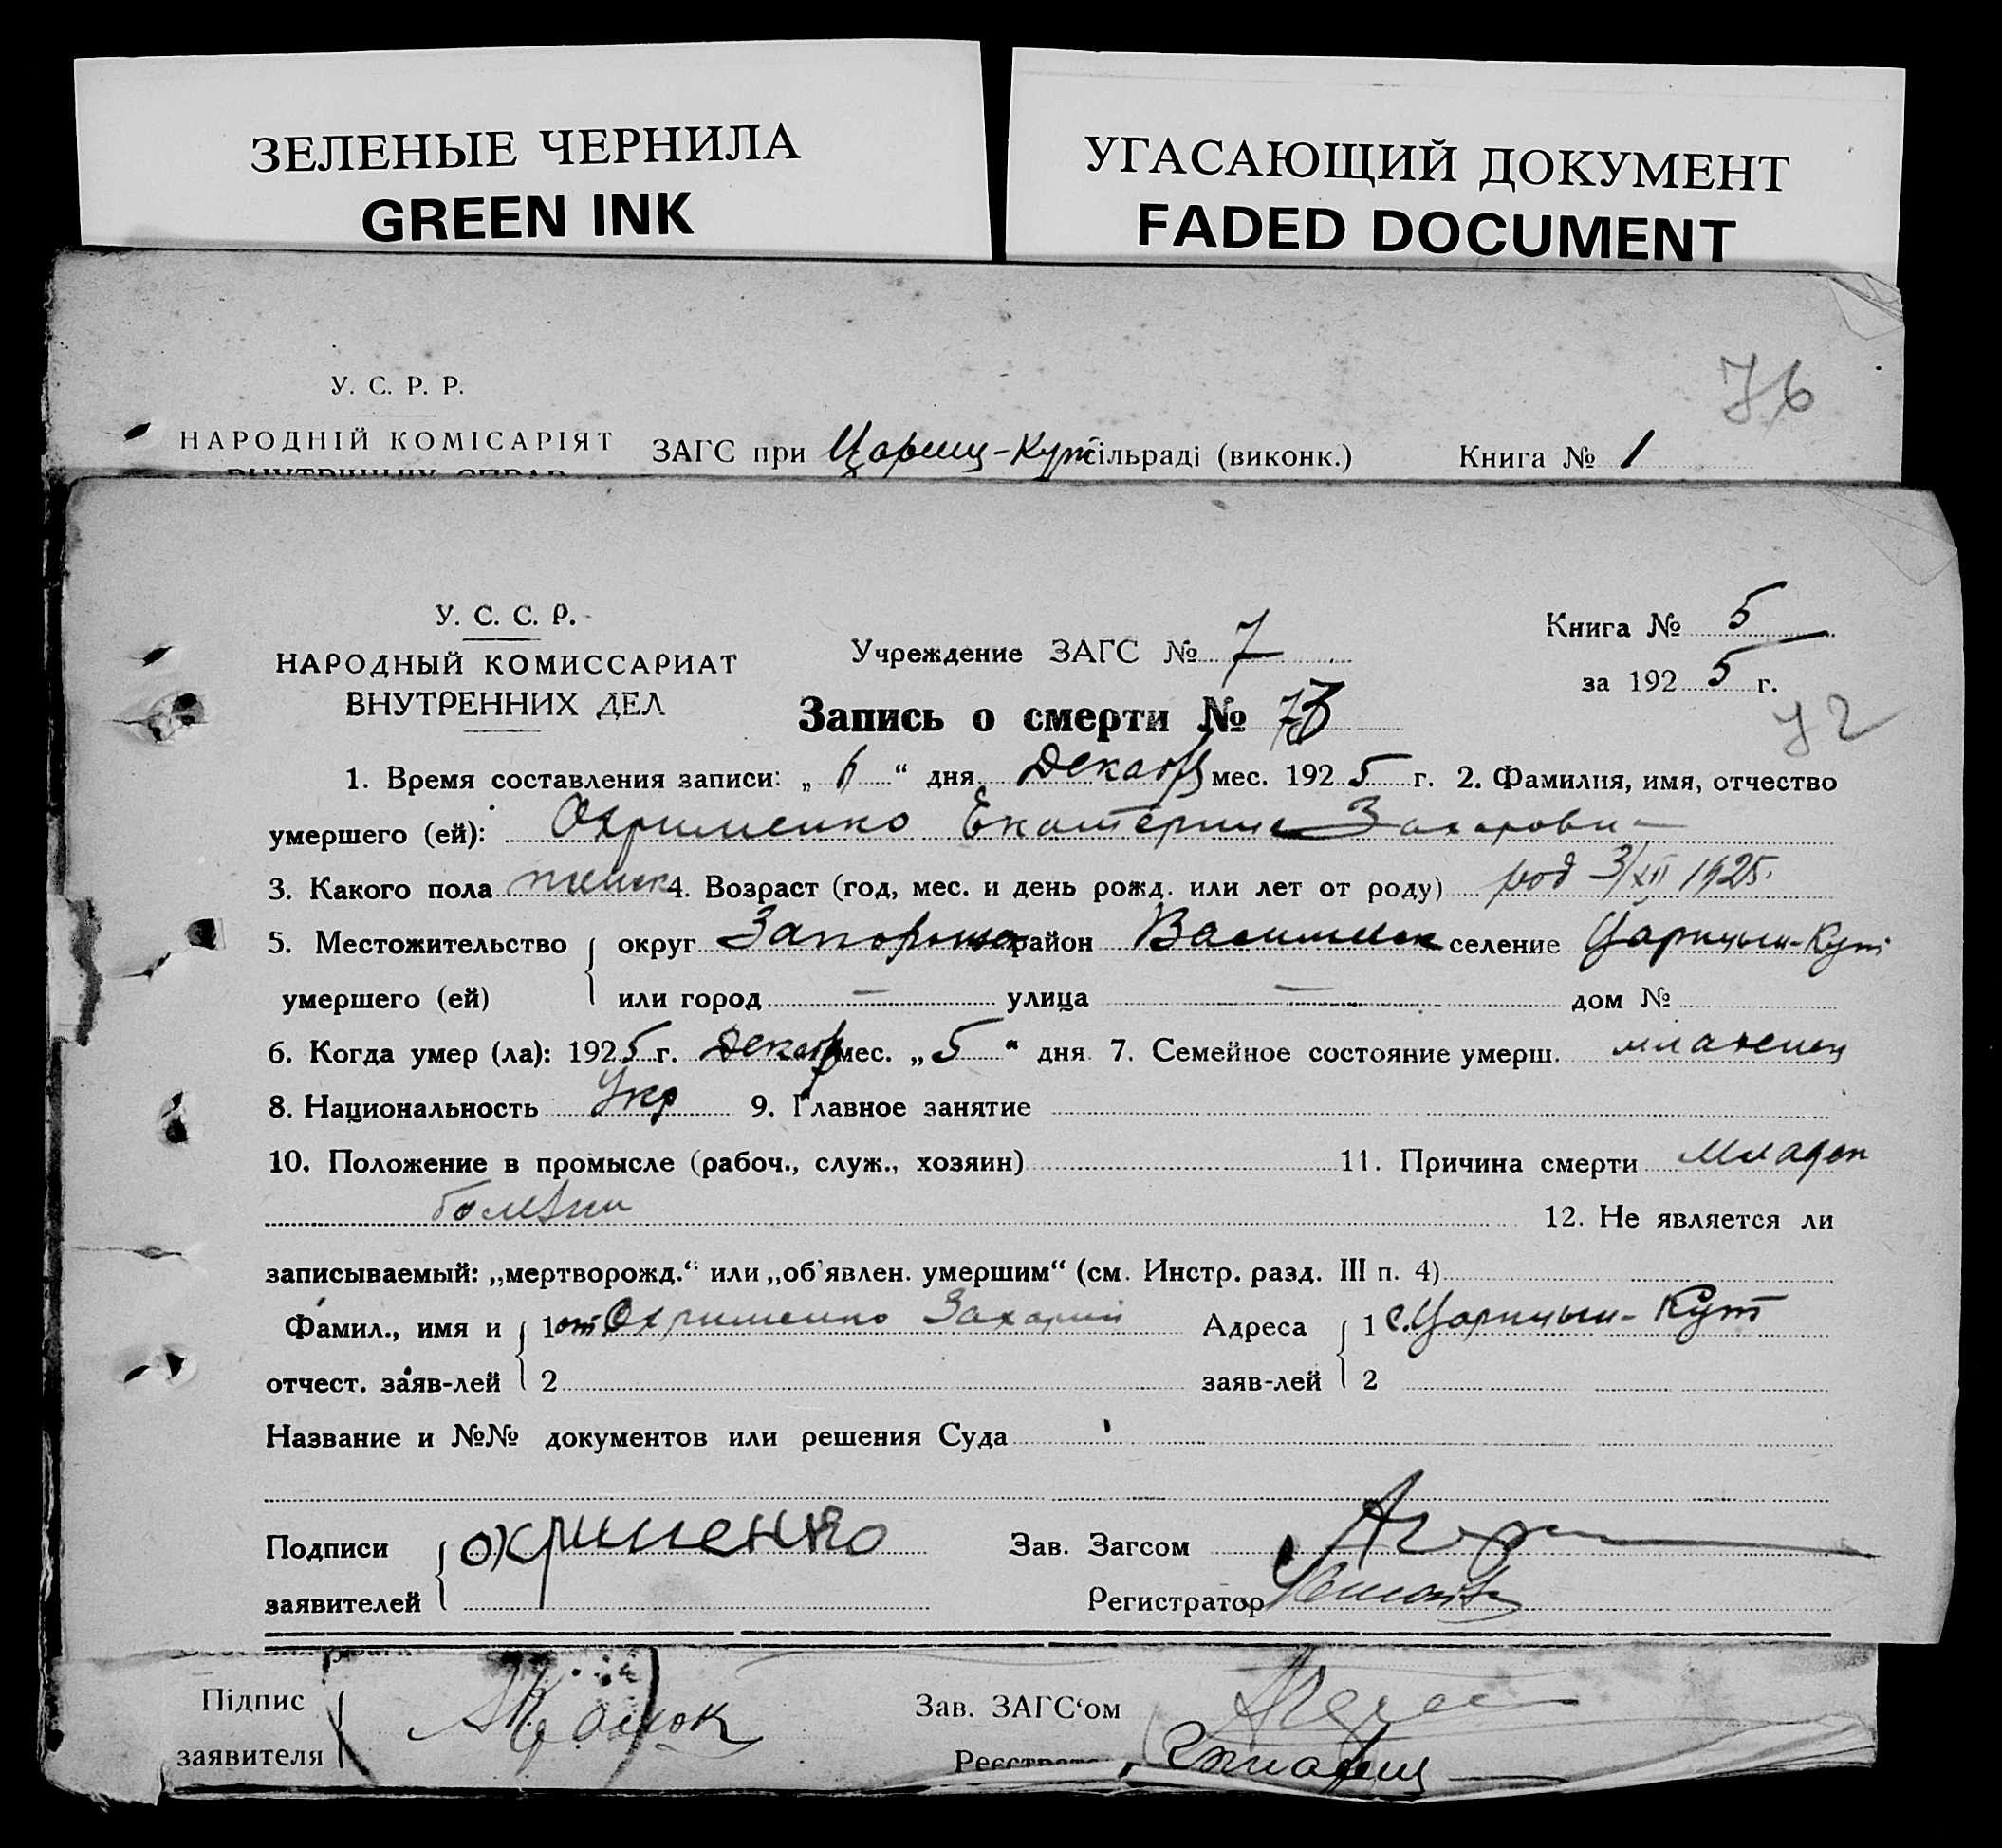 ЗЕЛЕНЫЕ ЧЕРНИЛА
GREEN INK
УГАСАЮЩИЙ ДОКУМЕНТ
FADED DOCUMENT
У. С. Р. Р.
76
НАРОДНІЙ КОМІСАРІЯТ ЗАГС при Цариц-Кут сільраді (виконк.) Книга № 1
ВНУТРІШНІХ СПРАВ
У. С. С. Р.
НАРОДНЫЙ КОМИССАРИАТ
ВНУТРЕННИХ ДЕЛ
Учреждение ЗАГС № 7
Книга № 5
за 1925 г.
72
Запись о смерти № 73
1. Время составления записи: „ 6 “ дня Декабр мес. 1925 г. 2. Фамилия, имя, отчество
умершего (ей): Охрименко Екатерина Захаровна
3. Какого пола женск 4. Возраст (год, мес. и день рожд. или лет от роду) род 3/XII 1925.
5. Местожительство округ Запорожск район Васильевск селение Царицын-Кут
умершего (ей) или город — улица — дом №
6. Когда умер (ла): 1925 г. Декабр мес. „ 5 “ дня 7. Семейное состояние умерш. младенец
8. Национальность Укр 9. Главное занятие
10. Положение в промысле (рабоч., служ., хозяин) 11. Причина смерти Младен
болезни
12. Не является ли
записываемый: „мертворожд.“ или „об'явлен. умершим“ (см. Инстр. разд. III п. 4)
Фамил., имя и 1 от Охрименко Захарий Адреса 1 с. Царицын-Кут
отчест. заяв-лей 2 заяв-лей 2
Название и №№ документов или решения Суда
Подписи охрименко Зав. Загсом
заявителей Регистратор
Підпис Зав. ЗАГС'ом
заявителя